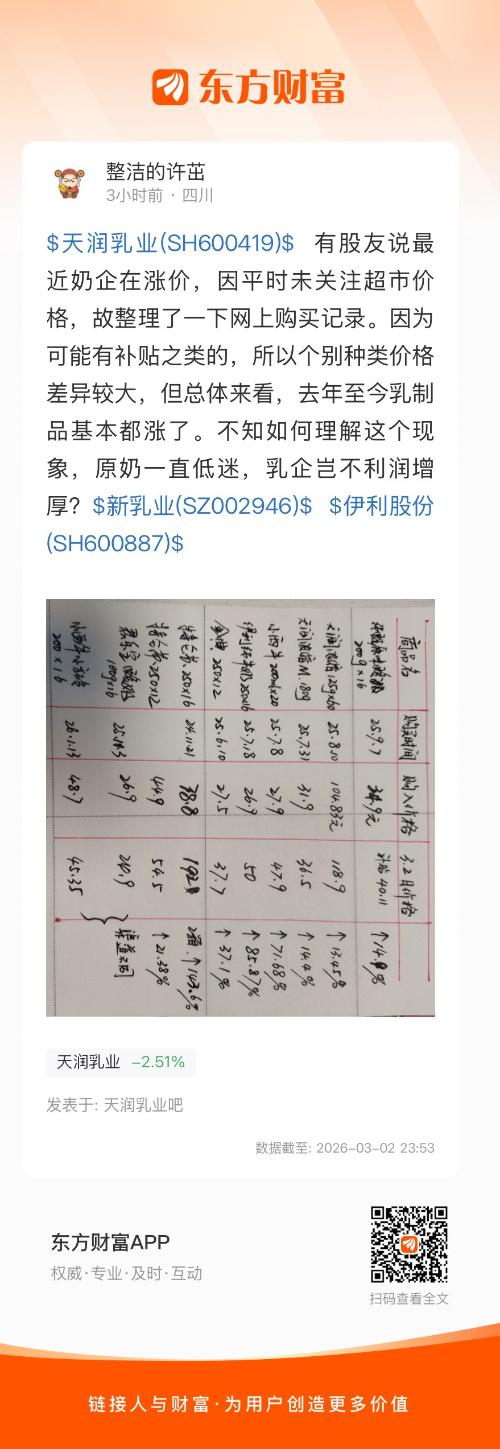 东方财富
整洁的许茁
3小时前 · 四川
$天润乳业(SH600419)$ 有股友说最
近奶企在涨价，因平时未关注超市价
格，故整理了一下网上购买记录。因为
可能有补贴之类的，所以个别种类价格
差异较大，但总体来看，去年至今乳制
品基本都涨了。不知如何理解这个现
象，原奶一直低迷，乳企岂不利润增
厚？$新乳业(SZ002946)$ $伊利股份
(SH600887)$
商品名 购买时间 购入价格 3.2日价格
200g×16 25.9.7 34.9元 补贴40.11
天润浓缩125g×60 25.8.10 104.83元 118.9 ↑13.45%
25.7.31 31.9 36.5 ↑14.4%
小西牛 200ml×20 25.7.8 27.9 47.9 ↑71.68%
25.7.18 26.9 50 ↑85.87%
250×12 25.6.10 27.5 37.7 ↑37.1%
特仑苏 250×16 24.11.21 ↑143.6%
特仑苏 250×12 44.9 54.5 ↑21.38%
君乐宝 26.9
200×16 26.1.13 48.7 45.35
天润乳业 -2.51%
发表于: 天润乳业吧
数据截至: 2026-03-02 23:53
东方财富APP
权威·专业·及时·互动
扫码查看全文
链接人与财富·为用户创造更多价值